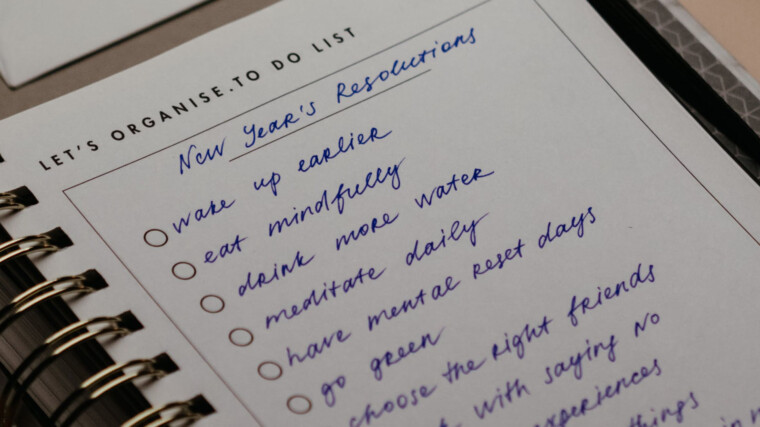 LET'S ORGANISE.TO DO LIST
New Year's Resolutions
wake up earlier
eat mindfully
drink more water
meditate daily
have mental reset days
go green
choose the right friends
with saying no
experiences
things